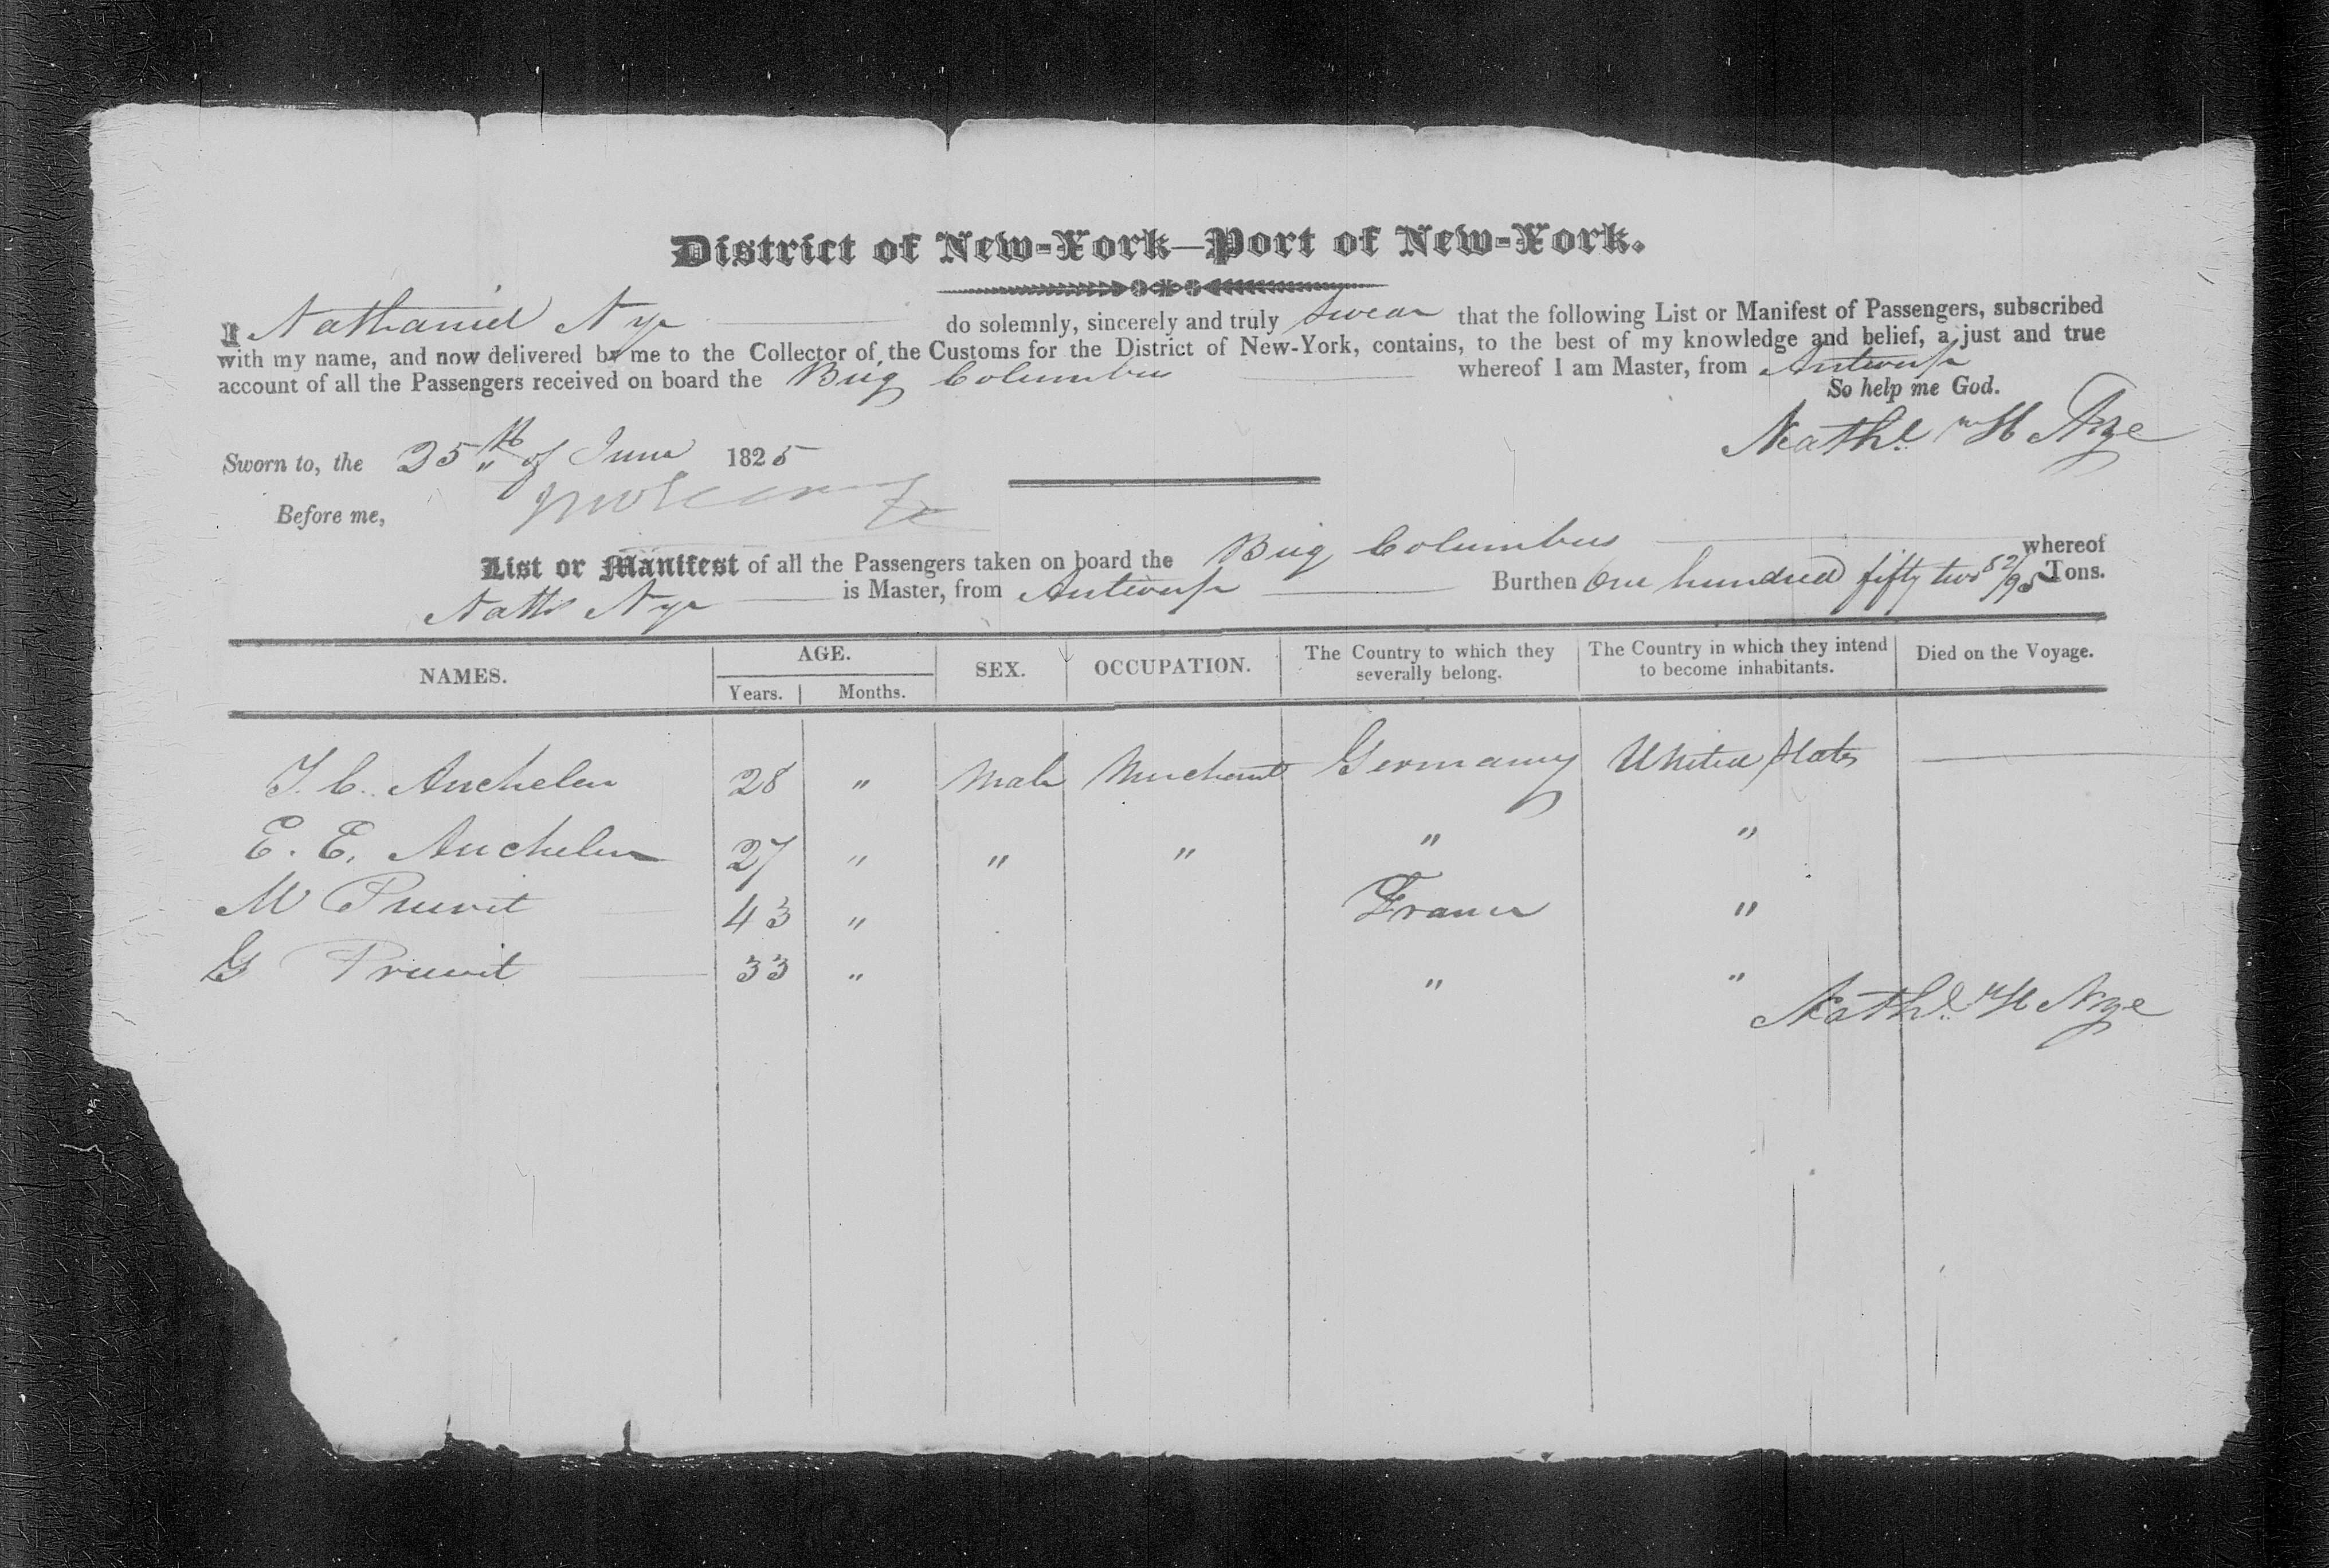 District of New-York—Port of New-York.
I Nathaniel Nye do solemnly, sincerely and truly swear that the following List or Manifest of Passengers, subscribed
with my name, and now delivered by me to the Collector of the Customs for the District of New-York, contains, to the best of my knowledge and belief, a just and true
account of all the Passengers received on board the Brig Columbus whereof I am Master, from Antwerp
So help me God.
Nathl H Nye
Sworn to, the 25th of June 1825
Before me,
List or Manifest of all the Passengers taken on board the Brig Columbus whereof
Nathl Nye is Master, from Antwerp Burthen One hundred fifty two 52/95 Tons.
NAMES. AGE. SEX. OCCUPATION. The Country to which they severally belong. The Country in which they intend to become inhabitants. Died on the Voyage.
Years. Months.
J. C. Auchelen 28 " Male Merchant Germany United States
E. E. Auchelen 27 " " " " "
M Pruvit 43 " France "
G Pruvit 33 " " "
Nathl H Nye